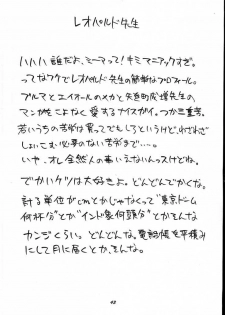 レオパルド先生
ハハハ 誰だよ、ミーマって！キミマニアックすぎ。
ってなワケでレオパルド先生の簡単なプロフィール。
プルマとエイオールのメカと矢追町
マンガをこよなく愛するナイスガイ。かつ三重苦。
若いうちの苦労は買ってでもしろというけど、わざわざ
しょいこむ必要のない苦労まで…。
いや、オレ全然人の事いえないんスけどね。
でかいケツは大好きよ。どんどんでかくな。
計る単位がcmとかじゃなくって"東京ドーム
何杯分"とか"インド象何頭分"とかそんな
カンジくらい。どんどんな。電話帳を平積み
にして月に届くとか、そんな。